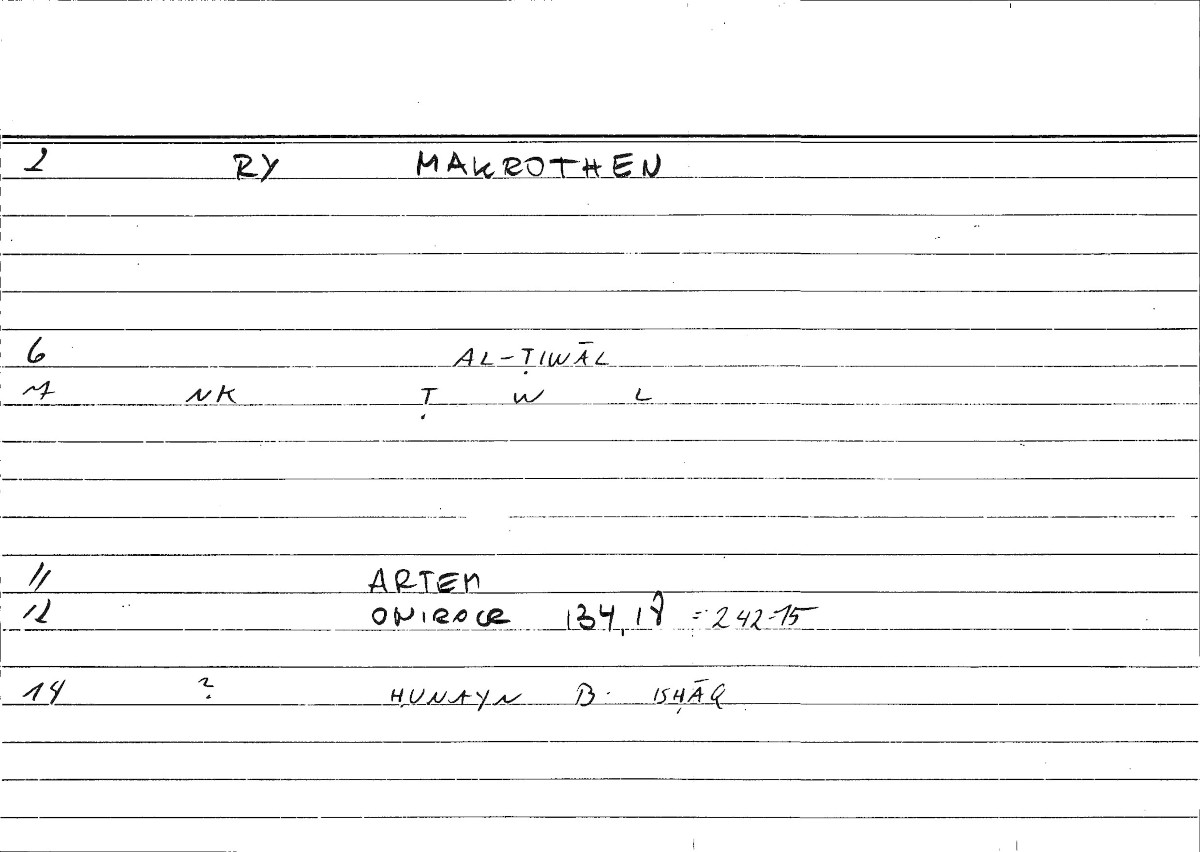 2 RY MAKROTHEN
6 AL-ṬIWĀL
7 NK Ṭ W L
11 ARTEM
12 ONIROCR 134,18 = 242-15
14 ? ḤUNAYN B. ISḤĀQ